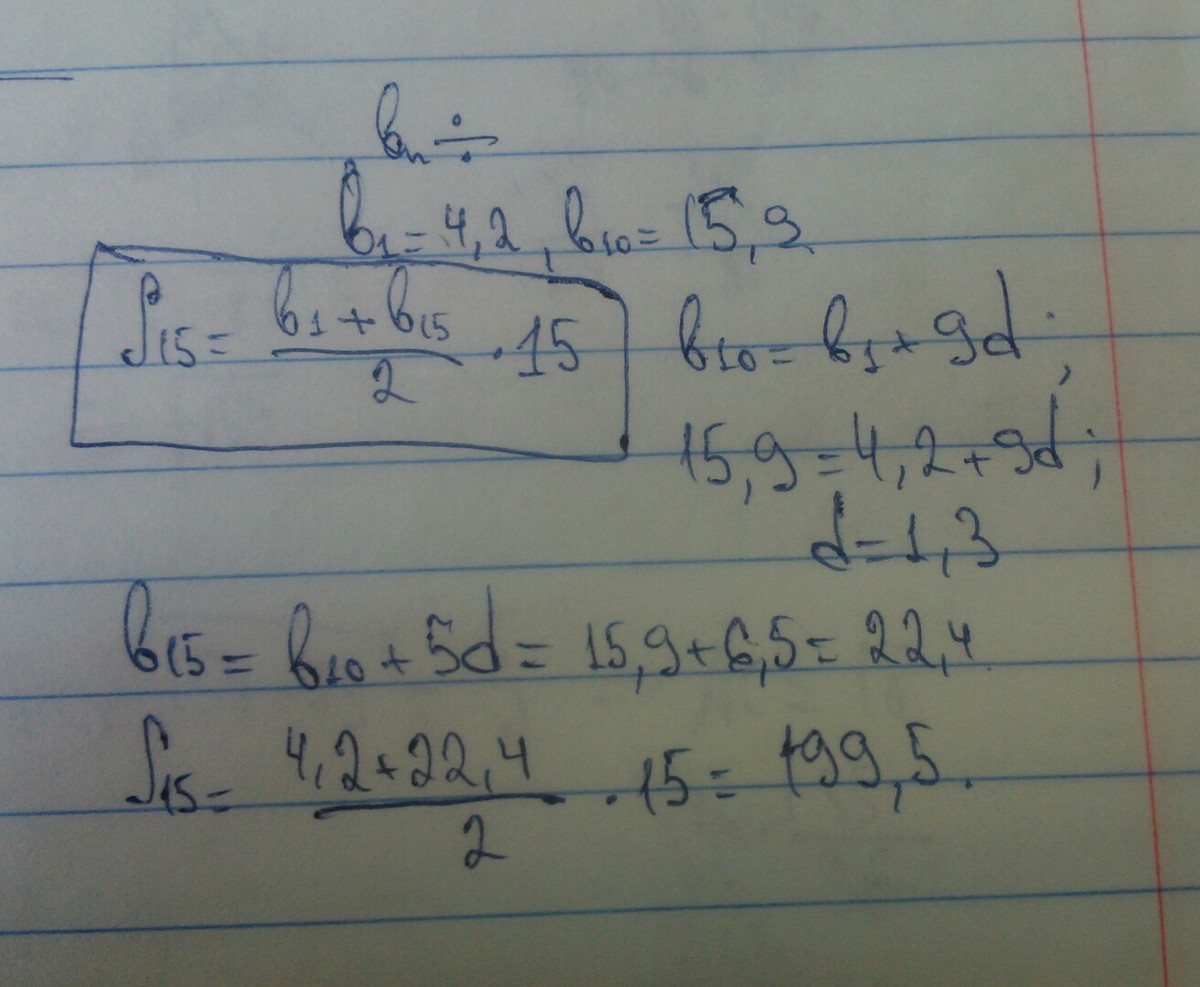 bₙ ÷
b₁ = 4,2 , b₁₀ = 15,9
S₁₅ = (b₁ + b₁₅)/2 · 15
b₁₀ = b₁ + 9d ;
15,9 = 4,2 + 9d ;
d = 1,3
b₁₅ = b₁₀ + 5d = 15,9 + 6,5 = 22,4
S₁₅ = (4,2 + 22,4)/2 · 15 = 199,5.